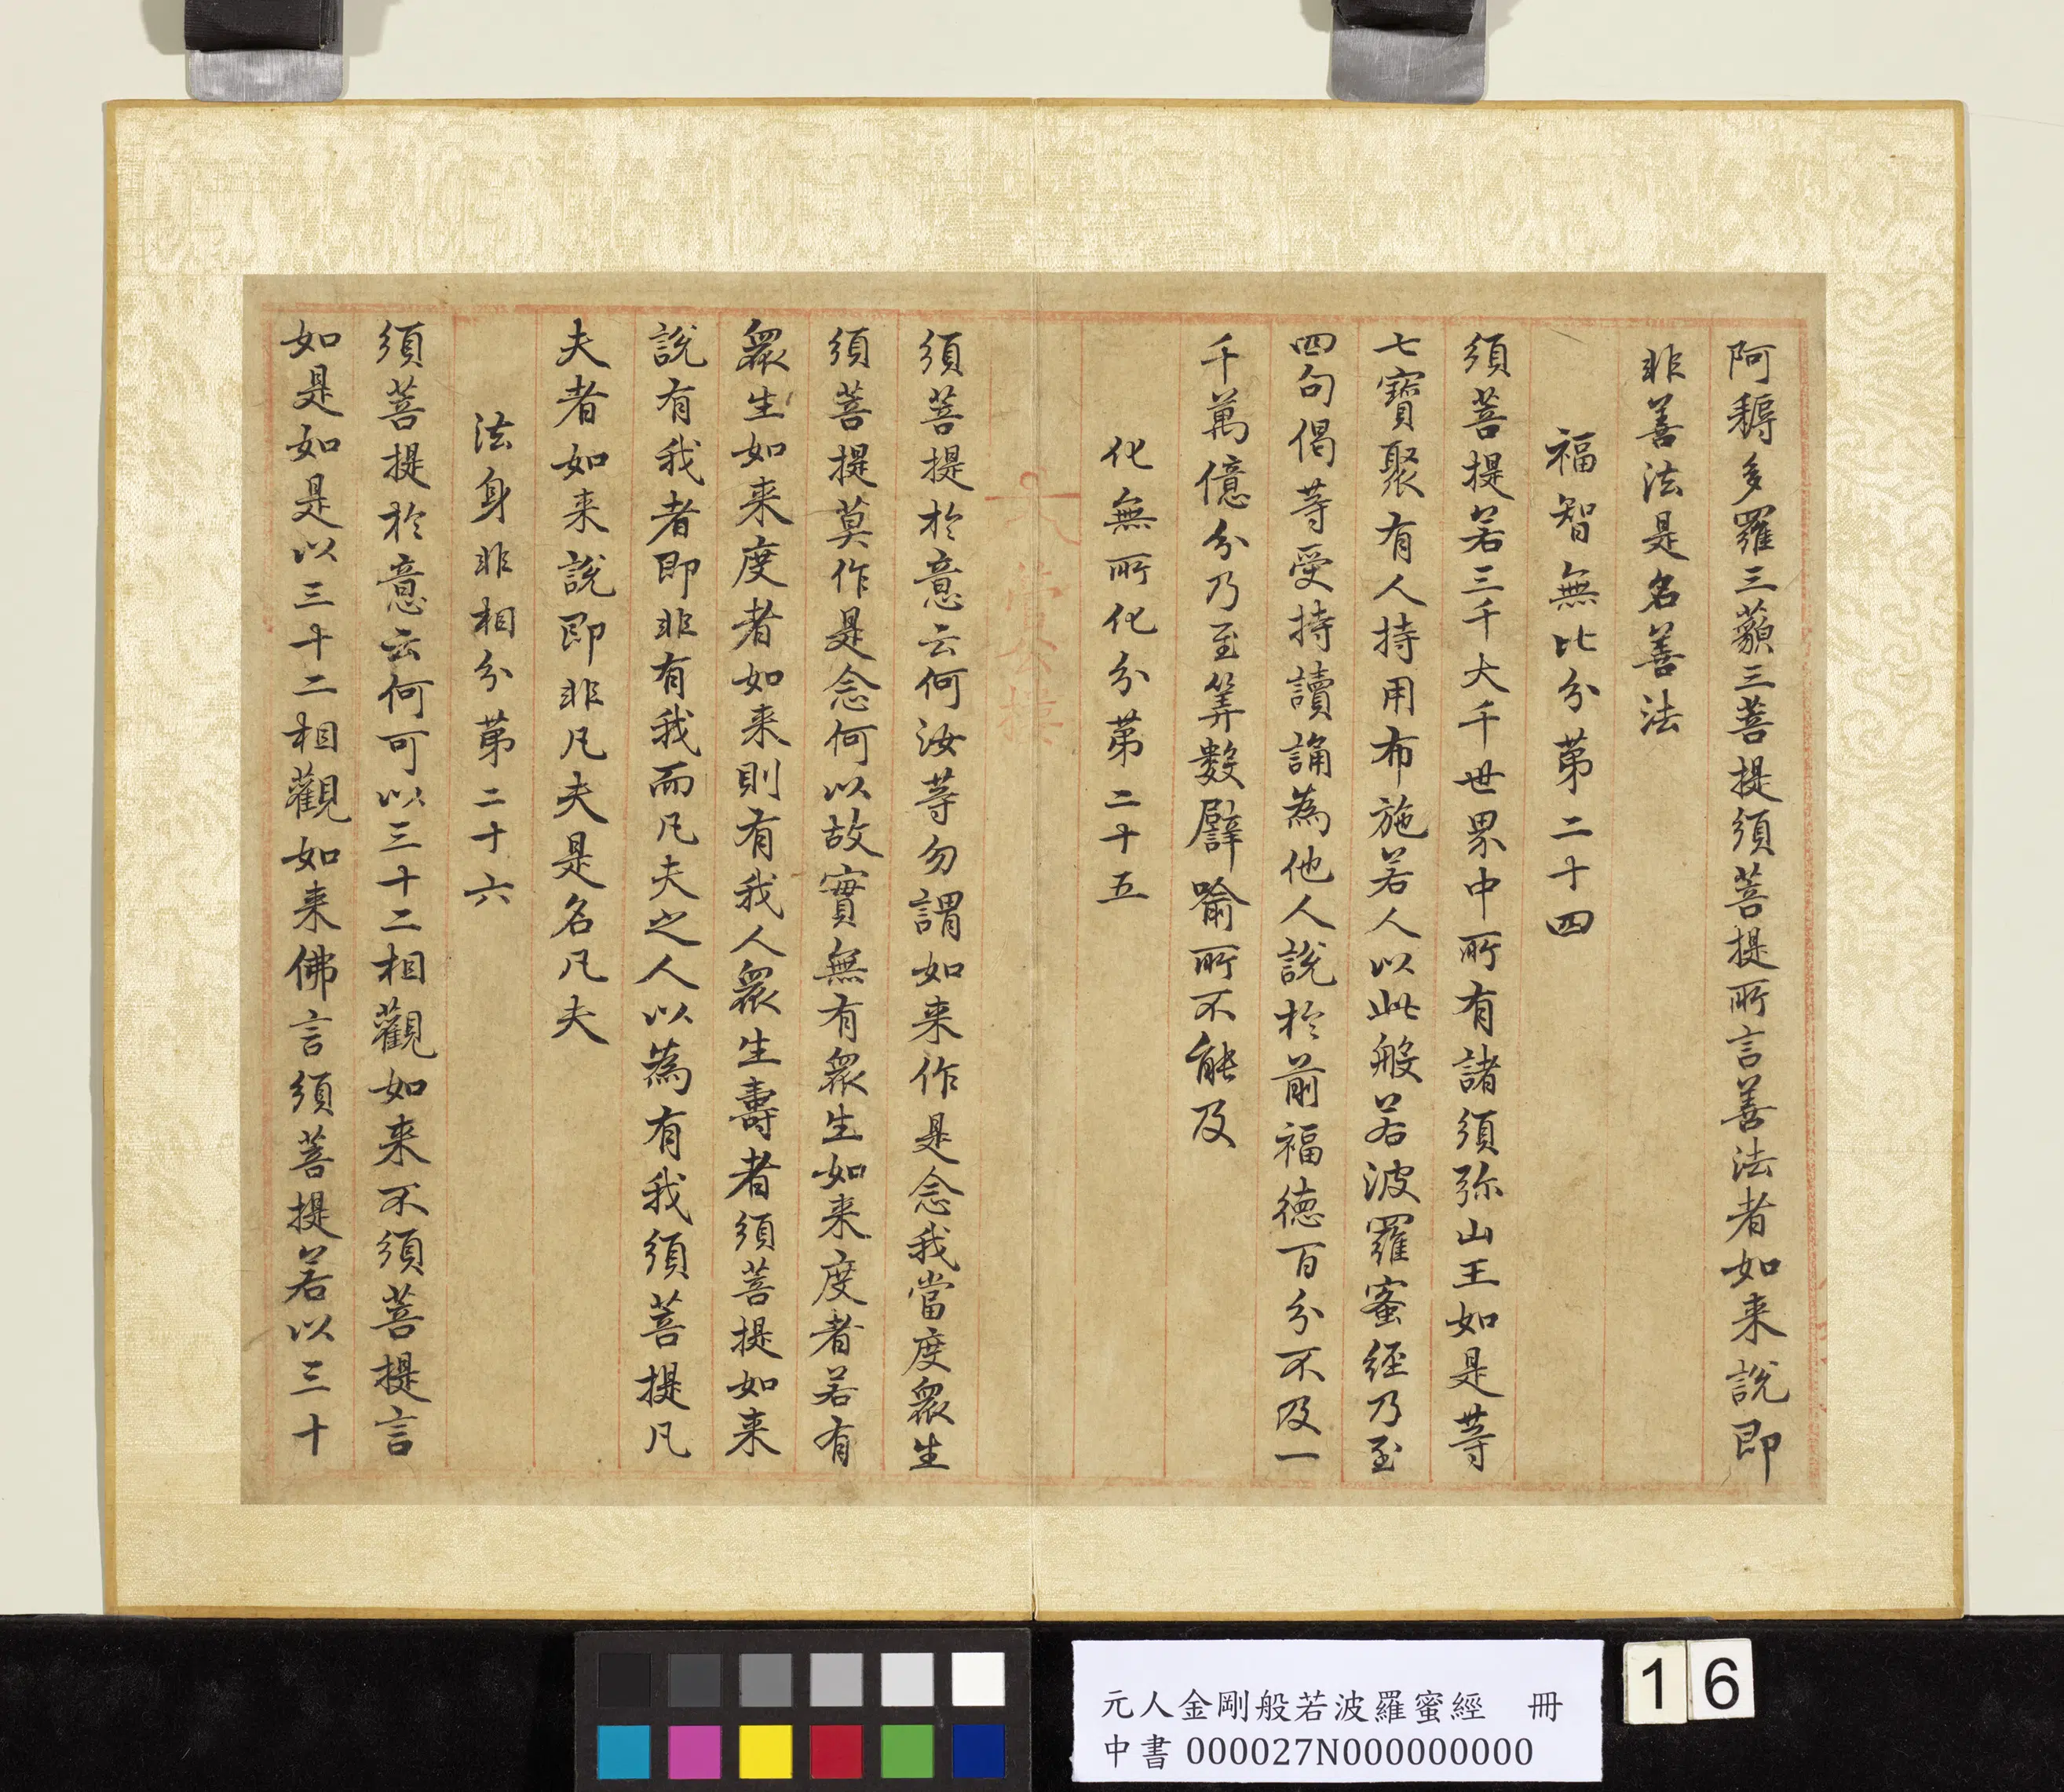 阿耨多羅三藐三菩提須菩提所言善法者如来說即
非善法是名善法
福智無比分苐二十四
須菩提若三千大千世界中所有諸須弥山王如是等
七寶聚有人持用布施若人以此般若波羅蜜經乃至
四句偈等受持讀誦為他人說於前福德百分不及一
千萬億分乃至筭數譬喻所不能及
化無所化分苐二十五
須菩提於意云何汝等勿謂如来作是念我當度衆生
須菩提莫作是念何以故實無有衆生如来度者若有
衆生如来度者如来則有我人衆生壽者須菩提如来
說有我者即非有我而凡夫之人以為有我須菩提凡
夫者如来說即非凡夫是名凡夫
法身非相分苐二十六
須菩提於意云何可以三十二相觀如来不須菩提言
如是如是以三十二相觀如来佛言須菩提若以三十
元人金剛般若波羅蜜經　冊
中書 000027N000000000
16